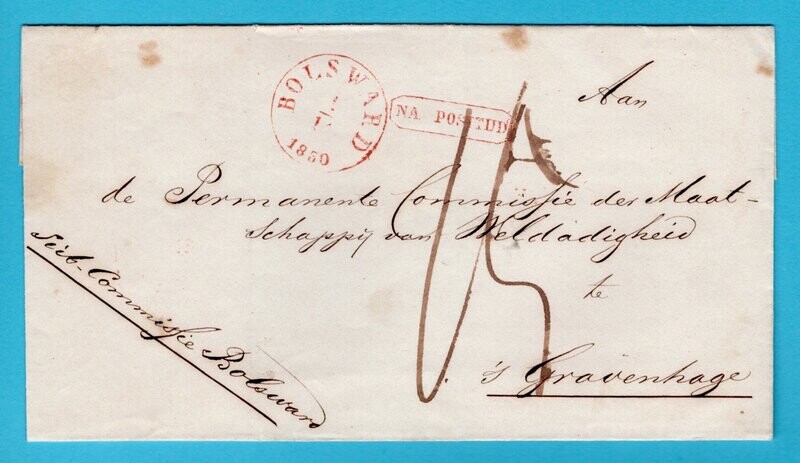 BOLSWARD
1850
NA POSTTIJD
Aan
de Permanente Commissie der Maat-
schappij van Weldadigheid
te
's Gravenhage
Sub-Commissie Bolsward
15